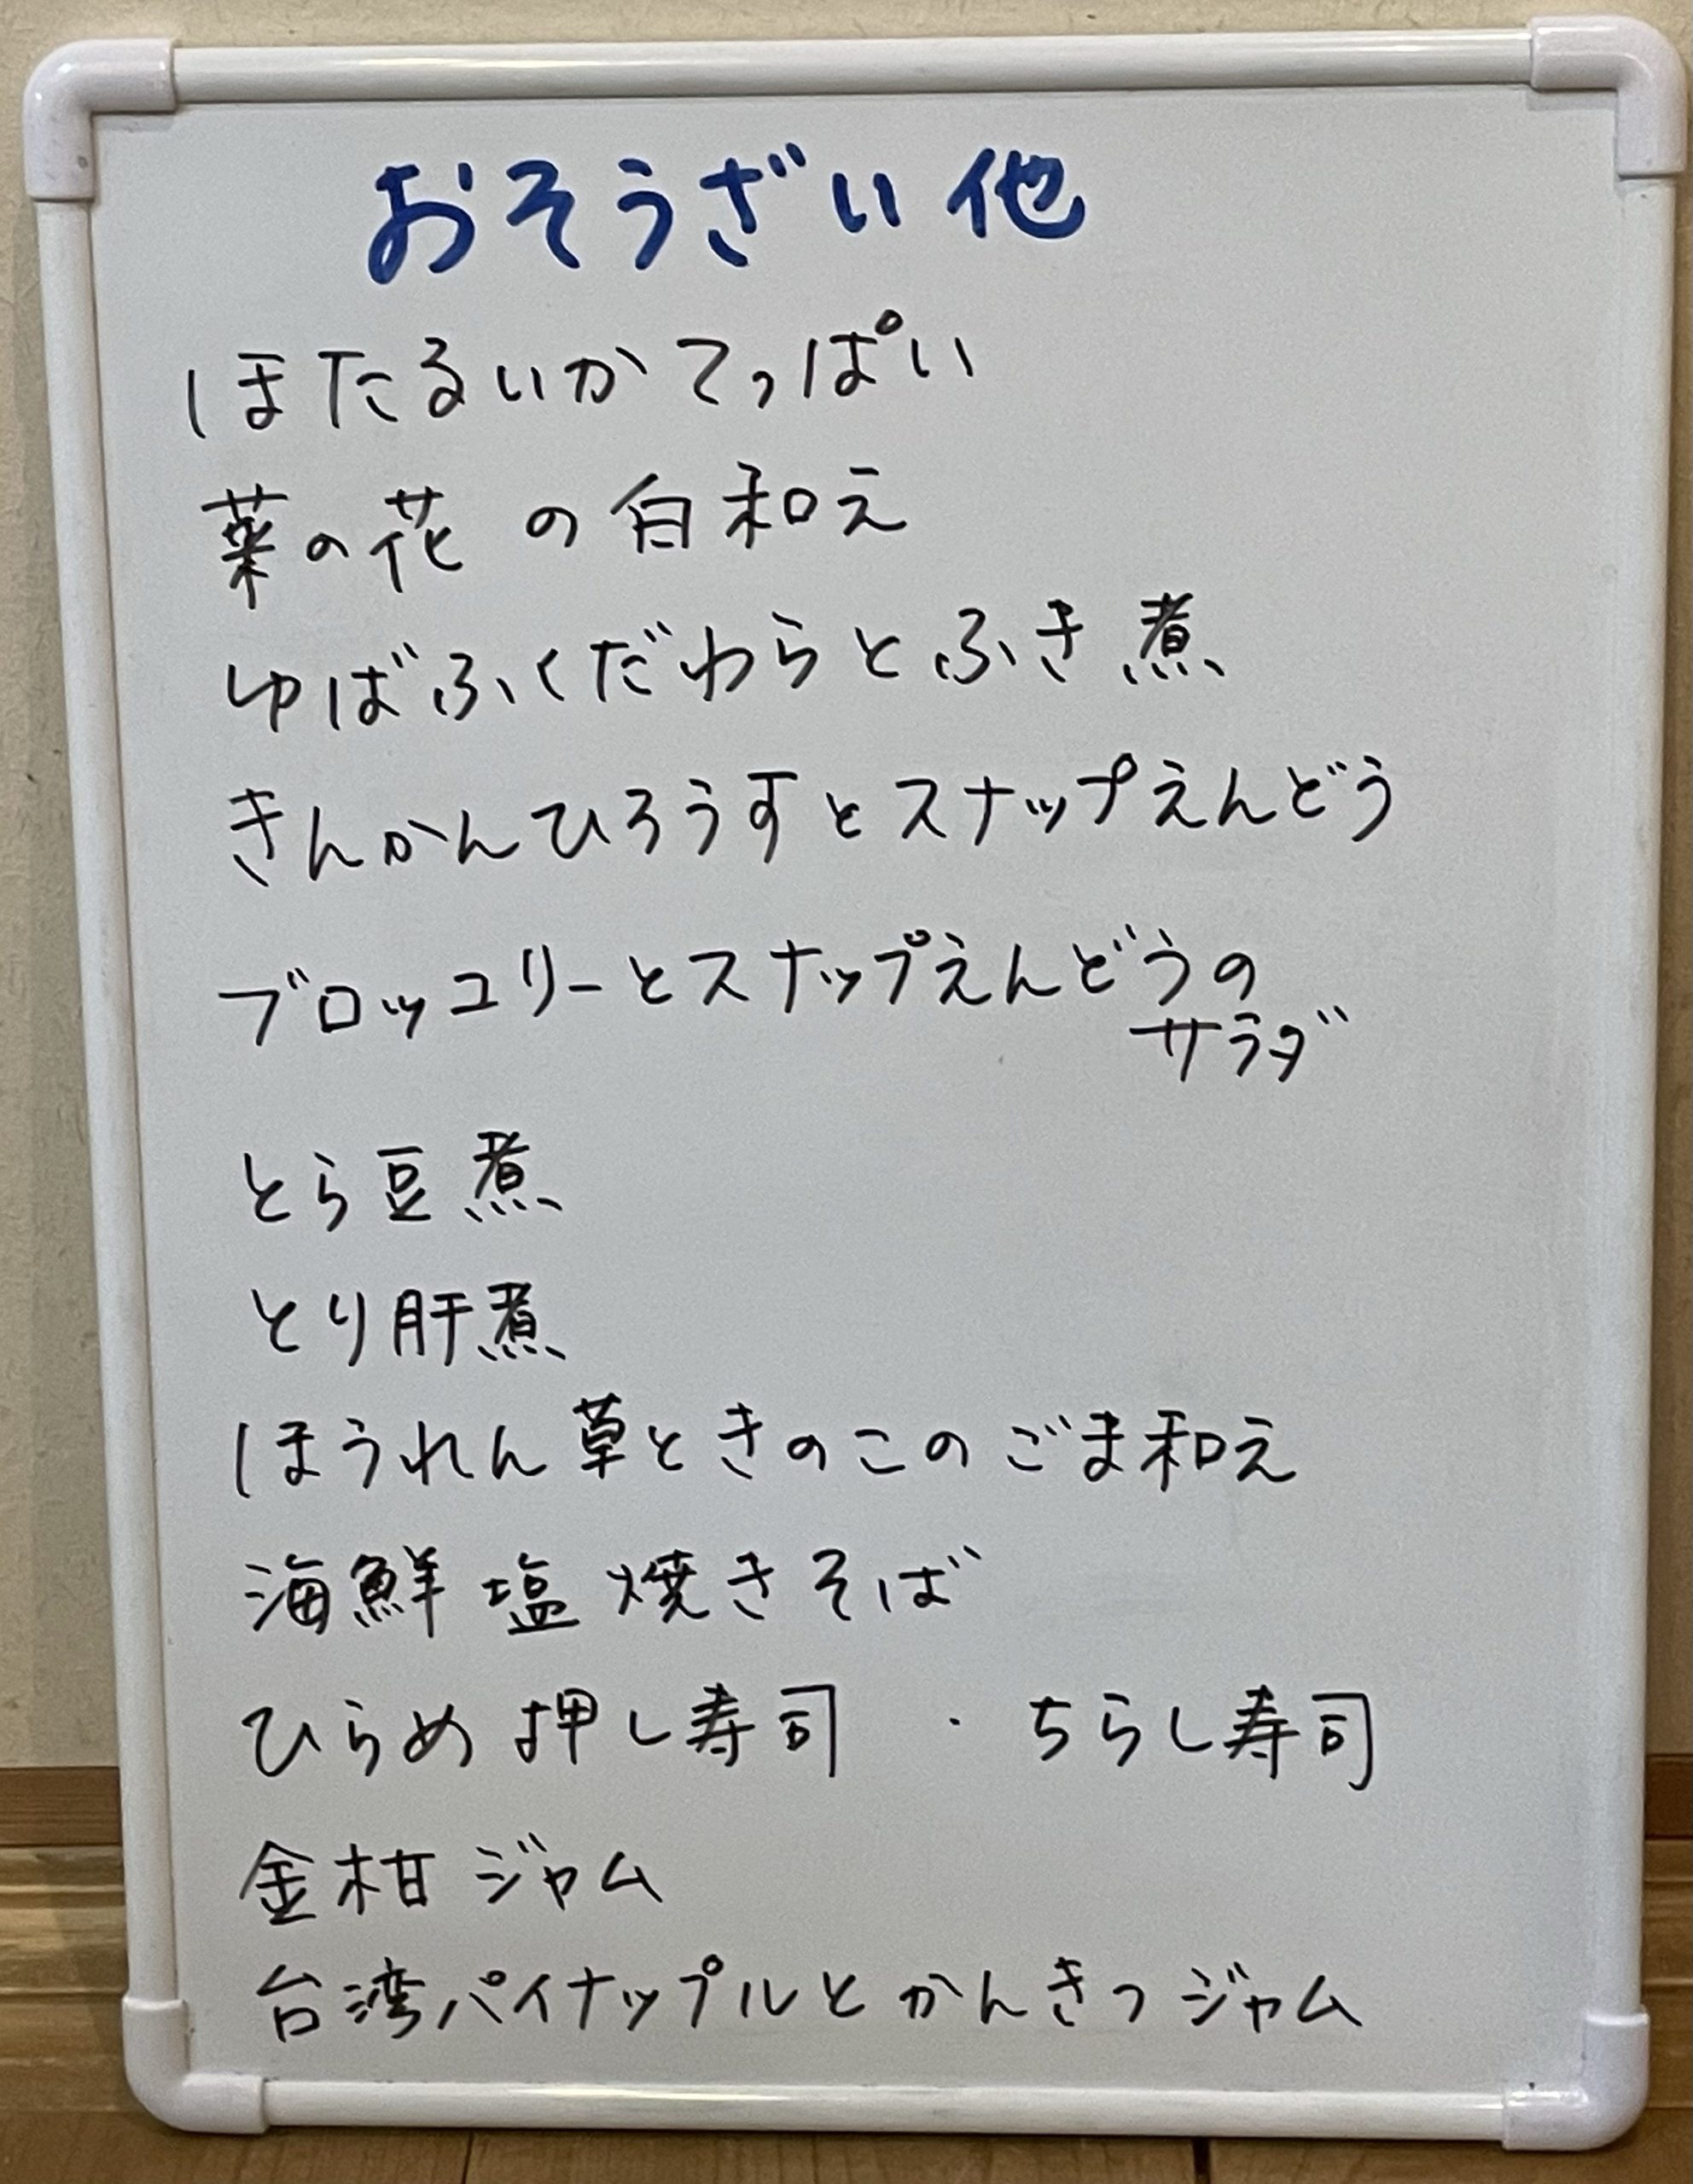 おそうざい 他
ほたるいかてっぱい
菜の花の白和え
ゆばふくだわらとふき煮
きんかんひろうすとスナップえんどう
ブロッコリーとスナップえんどうの
サラダ
とら豆煮
とり肝煮
ほうれん草ときのこのごま和え
海鮮塩焼きそば
ひらめ押し寿司 ・ ちらし寿司
金柑ジャム
台湾パイナップルとかんきつジャム